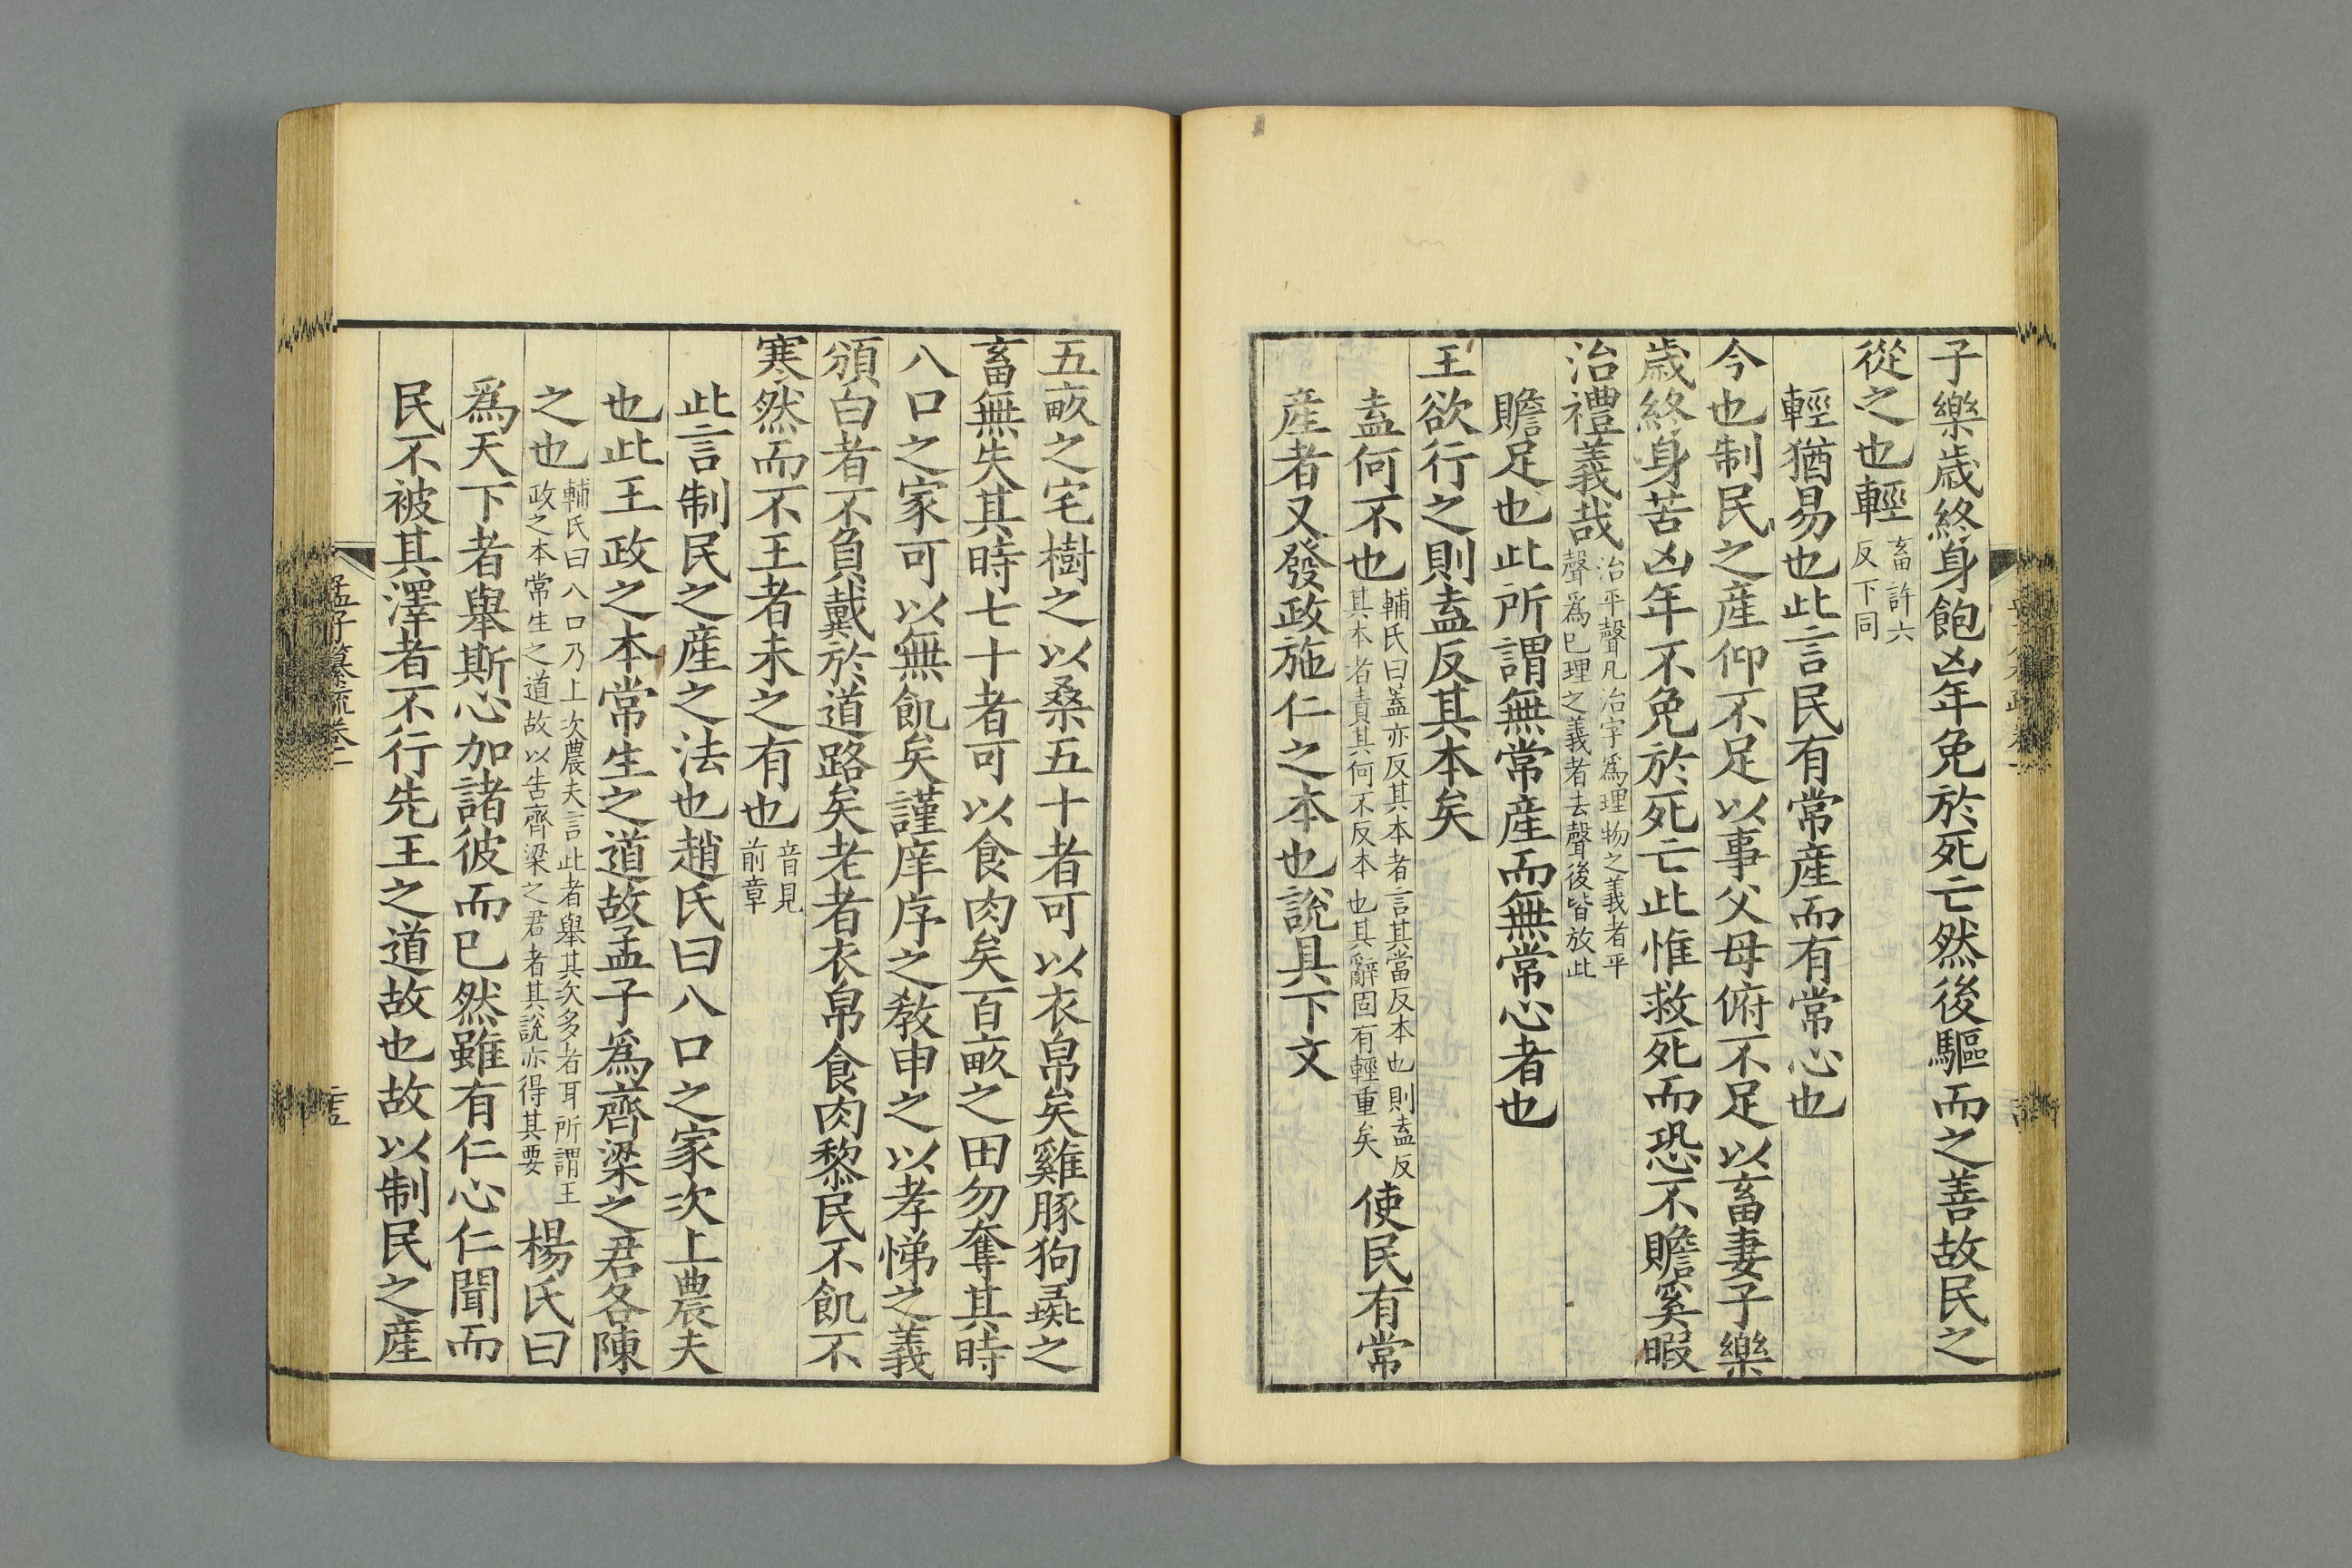 子樂歲終身飽凶年免於死亡然後驅而之善故民之
從之也輕畜許六
反下同
輕猶易也此言民有常產而有常心也
今也制民之產仰不足以事父母俯不足以畜妻子樂
歲終身苦凶年不免於死亡此惟救死而恐不贍奚暇
治禮義哉治平聲凡治字爲理物之義者平
聲爲已理之義者去聲後皆放此
贍足也此所謂無常產而無常心者也
王欲行之則盍反其本矣
盍何不也輔氏曰蓋亦反其本者言其當反本也則盍反
其本者責其何不反本也其辭固有輕重矣使民有常
產者又發政施仁之本也說具下文
五畝之宅樹之以桑五十者可以衣帛矣雞豚狗彘之
畜無失其時七十者可以食肉矣百畝之田勿奪其時
八口之家可以無飢矣謹庠序之教申之以孝悌之義
頒白者不負戴於道路矣老者衣帛食肉黎民不飢不
寒然而不王者未之有也音見
前章
此言制民之產之法也趙氏曰八口之家次上農夫
也此王政之本常生之道故孟子爲齊梁之君各陳
之也輔氏曰八口乃上次農夫言此者舉其次多者耳所謂王
政之本常生之道故以告齊梁之君者其說亦得其要楊氏曰
爲天下者舉斯心加諸彼而已然雖有仁心仁聞而
民不被其澤者不行先王之道故也故以制民之產
孟子纂疏卷一